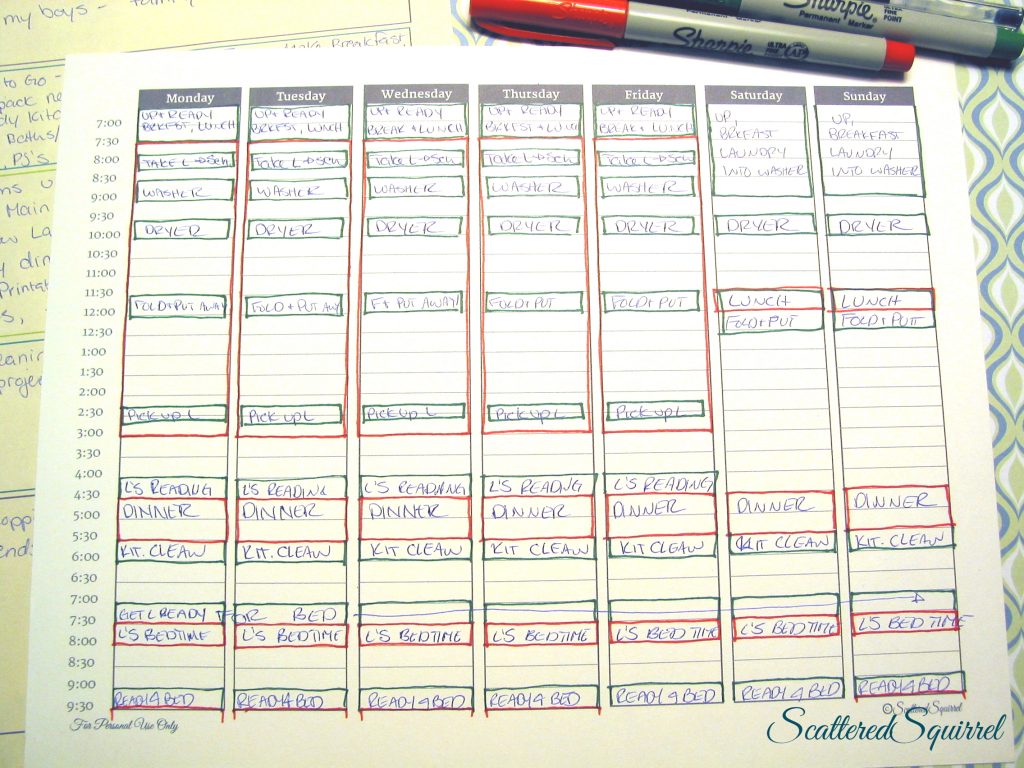 my boys - family
make Breakfast,
to Go -
Sharpie
Permanent Marker
ULTRA FINE POINT
Sharpie
Permanent Marker
ULTRA FINE
AP
pack
Baths/
PJ's
Main
Monday Tuesday Wednesday Thursday Friday Saturday Sunday
UP+ READY UP+ READY UP+ READY UP+ READY UP+ READY UP, UP,
7:00 BRKFST, LUNCH BRKFST, LUNCH BREAK + LUNCH BRKFST + LUNCH BREAK + LUNCH BRKFAST BREAKFAST
7:30 LAUNDRY LAUNDRY
8:00 TAKE L → Sch Take L → Sch Take L → Sch Take L → Sch Take L → Sch INTO WASHER INTO WASHER
8:30
9:00 WASHER WASHER WASHER WASHER WASHER
9:30
10:00 DRYER DRYER DRYER DRYER DRYER DRYER DRYER
10:30
11:00
11:30 FOLD+PUT AWAY FOLD + PUT AWAY F+ PUT AWAY FOLD+PUT FOLD+PUT LUNCH LUNCH
12:00 FOLD+PUT FOLD+PUT
12:30
1:00
1:30
2:00
2:30 Pick up L Pick up L Pick up L Pick up L Pick up L
3:00
3:30
4:00
4:30 L'S READING L'S READING L'S READING L'S READING L'S READING
5:00 DINNER DINNER DINNER DINNER DINNER DINNER DINNER
5:30
6:00 KIT. CLEAN KIT. CLEAN KIT CLEAN KIT CLEAN KIT CLEAN KIT CLEAN KIT. CLEAN
6:30
7:00
7:30 GET L READY FOR BED →
8:00 L'S BEDTIME L'S BEDTIME L'S BEDTIME L'S BEDTIME L'S BEDTIME L'S BEDTIME L'S BEDTIME
8:30
9:00
9:30 READY 4 BED READY 4 BED READY 4 BED READY 4 BED READY 4 BED READY 4 BED READY 4 BED
For Personal Use Only
©ScatteredSquirrel
ScatteredSquirrel